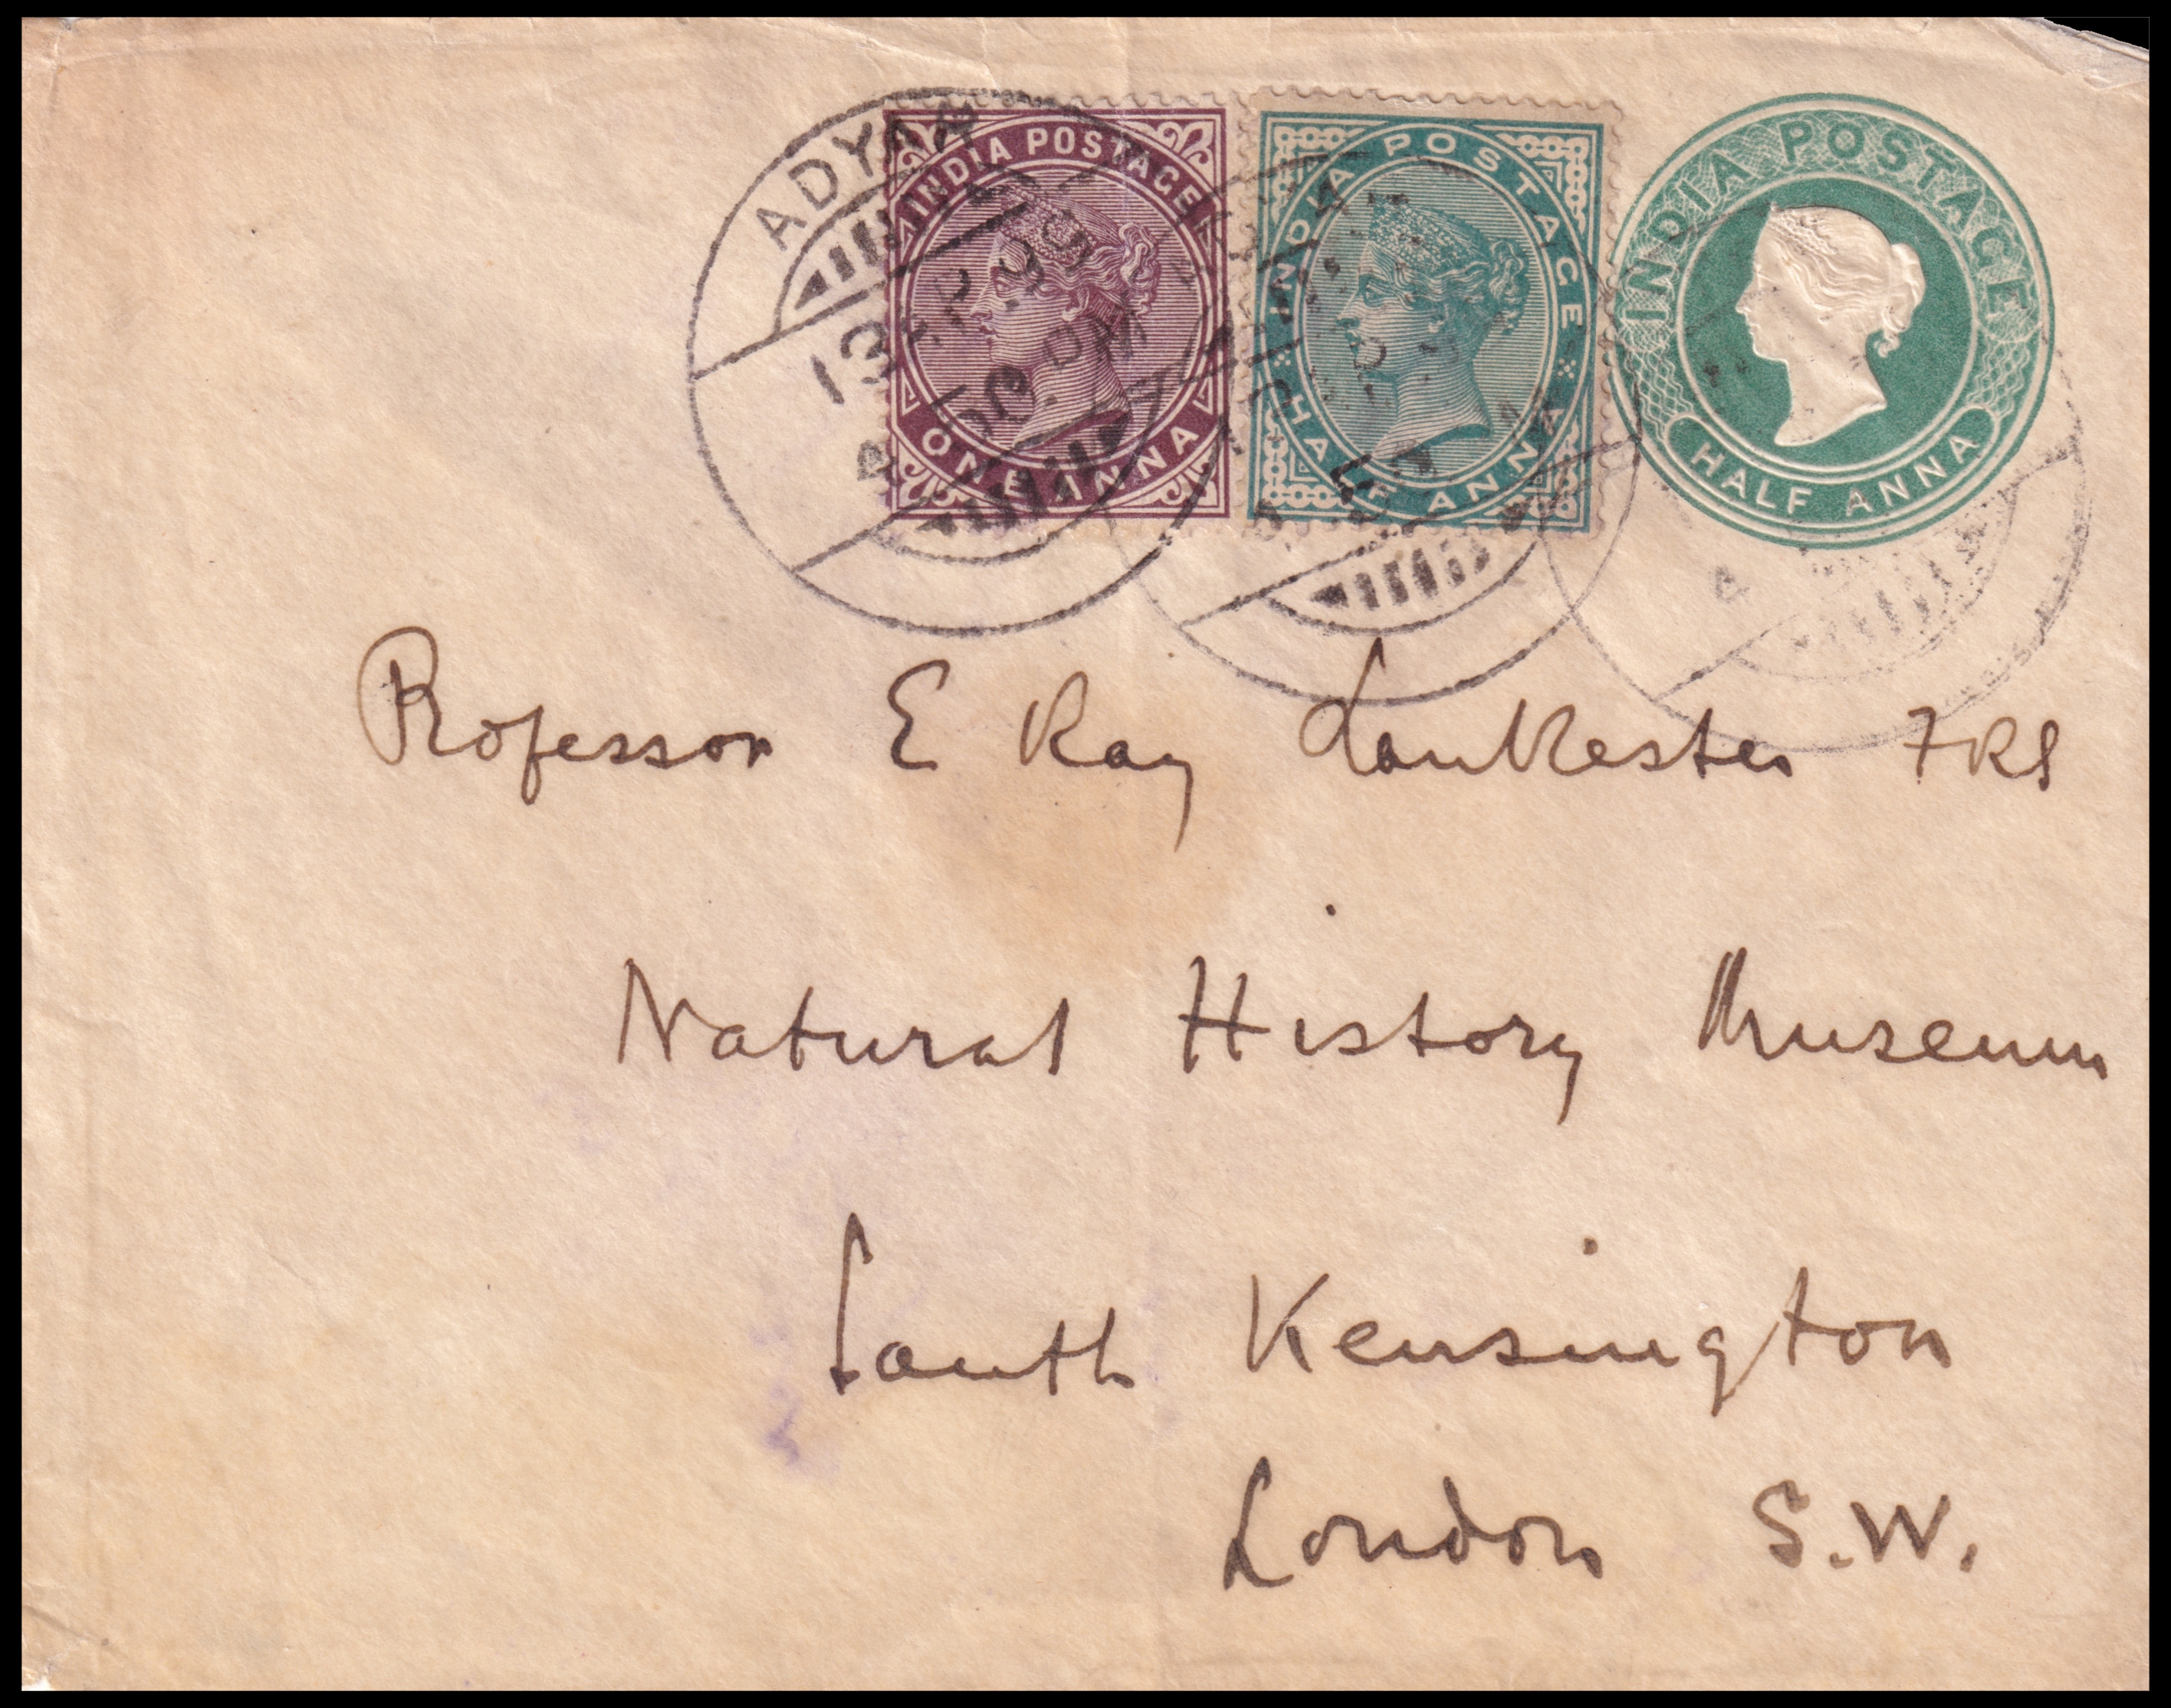 ADYAR
13 SP. 99
INDIA POSTAGE
ONE ANNA
INDIA POSTAGE
HALF ANNA
INDIA POSTAGE
HALF ANNA
Professor E Ray Lankester FRS
Natural History Museum
South Kensington
London S.W.